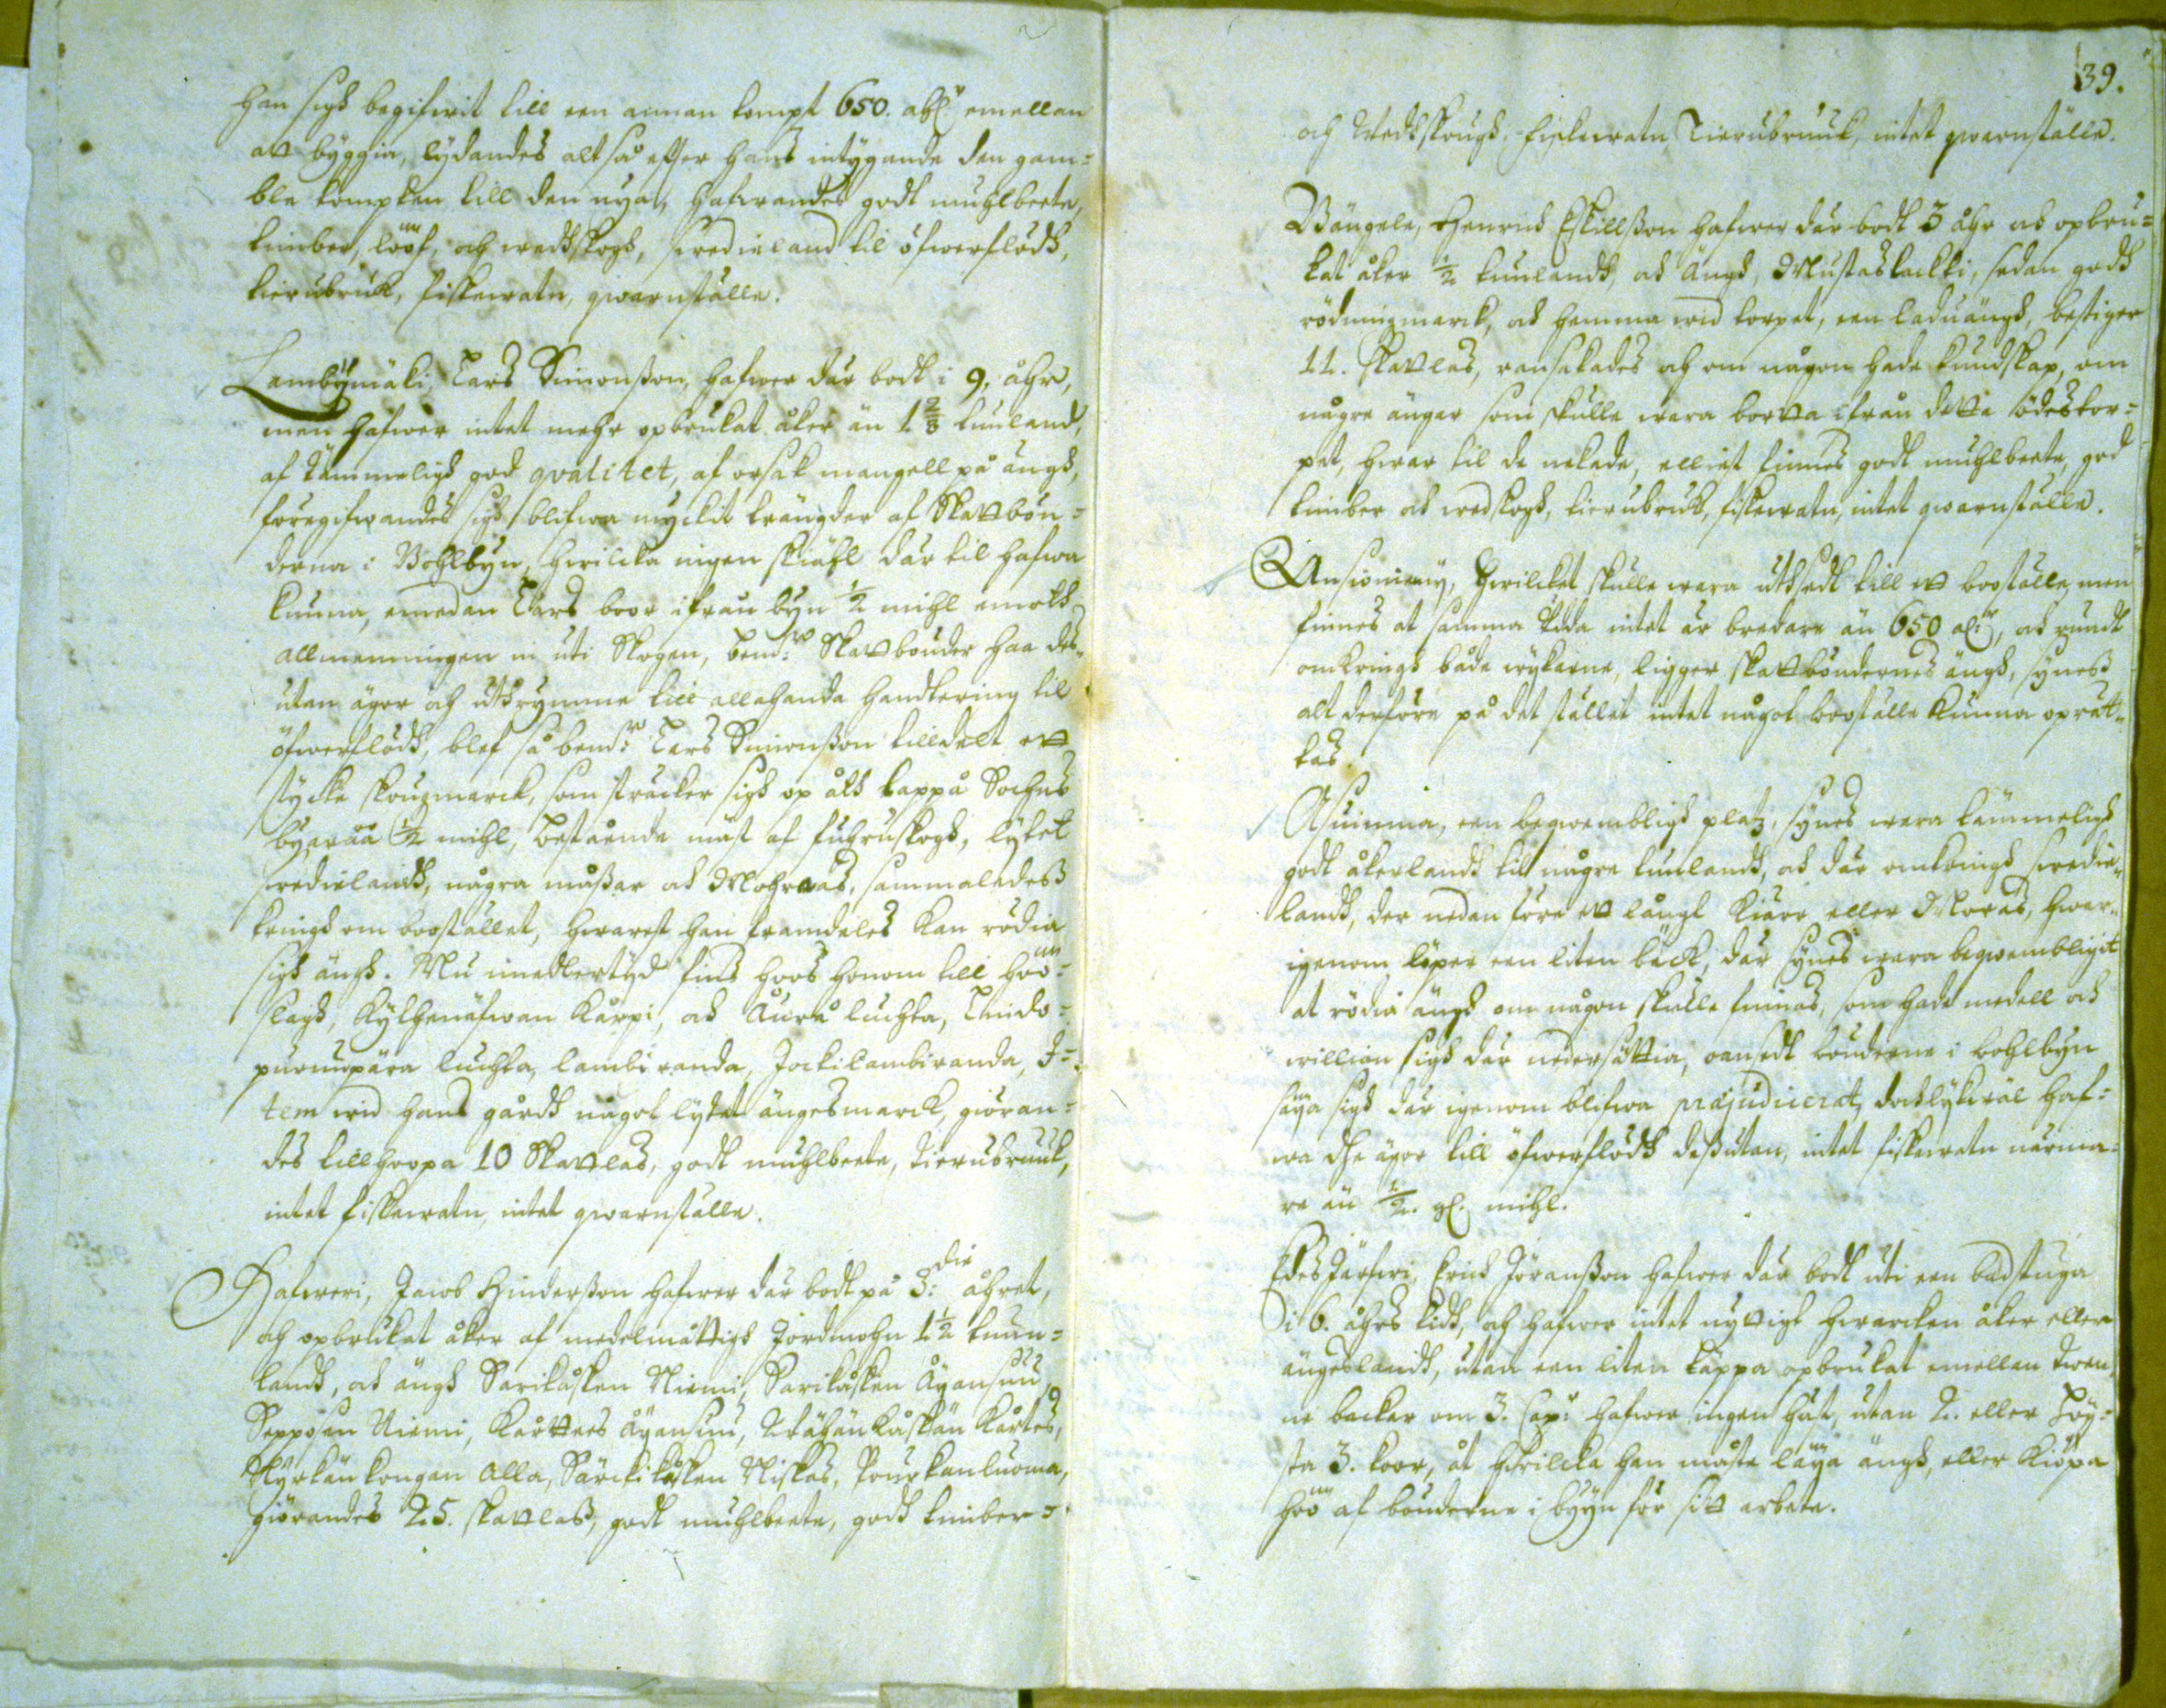 han sigh begifwit till een annan tompt 650. alnr emellan
att byggia, lydandes altså effter hans intygande den gam=
ble tompten till den nya, hafwandes godt muhlbeete,
timber, lööf, och wedhskogh, swedieland til öfwerflödh,
tierubruk, fiskewatn, qwarnställe.
Lambÿmäki, Lars Simonsson, hafwer där bodt i 9. åhr,
men hafwer intet mehr opbrukat åker än 1 2/3 tunland,
af tämmeligh god qvalitet, af orsak mangell på ängh,
föregifwandes sigh blifwa myckit trängder af Skattbön=
derna i Bohlbyn, hwilcka ingen skiähl där til hafwa
kunna, emedan Lars boor ifrån byn 1/2 mihl emoth
allmenningen in uti Skogen, bemte Skattbönder haa des=
utan ägor och uthrymme till allahanda handtering til
öfwerflödh, blef så bemte Lars Simonsson tilldelt ett
stycke skougzmarck, som sträcker sigh op åth Lappå Sochns
byarää 1/2 mihl, bestående mäst af furuskogh, lytet
swedielandh, några måssar och Mohraas, sammaledess
kringh om boostället, hwarest han framdeles kan rödia
sigh ängh. Nu imedlertÿd fins hoos honom till höö=
slagh, Kylhenäfwan Karpi, och Aura luchta,
luchta, lambi randa, Jockilambiranda, I=
tem wid hans gårdh något lytet ängesmarck, giöran=
des tillhoopa 10 Skattlas, godt muhlbeete, Tierubruuk,
intet fiskewatn, intet qwarnställe.
Hafweri, Jacob Hindersson hafwer där bodt på 3:die åhret,
och opbrukat åker af medelmåttigh Jordmohn 1 1/2 tunn=
landh, och ängh Sarikåsken Niemi, Sarikåsken Äyansuu,
Seppösen Niemi, Äyansuu,
Alla, Särckikåsken Niskas,
giörandes 25. skattlass, godt muhlbeete, godh timber=
39.
och Wedhskough, fiskewatn, Tierubruuk, intet qwarnställe.
Wängele, Henrich Eskillsson hafwer där bodt 3 åhr och opbru=
kat åker 1/2 tunlandh, och Ängh, Mustaslackti, sedan godh
rödningzmarck, och hemma wid torpet, een laduängh, bestiger
11. skattlas, ransakades och om någon hade kundskap, om
någre ängar som skulle wara borta ifrån detta ödestor=
pet, hwar til de nekade, elliest finnes godt muhlbeete, god
timber och wedskogh, tierubruk, fiskewatn, intet qwarnställe.
Ansioniemÿ, hwilcket skulle wara uthsedt till ett booställe, men
finnes at samma Udda intet är bredare än 650 alnr, och rundt
omkringh både wykarne, ligger skattböndernes ängh, syness
alt derföre på det stället intet något booställe kunna oprät=
tas.
Asuinma, een beqwembligh platz, synes wara tämmeligh
godt åkerlandh till någre tunlandh, och där omkringh swedie=
landh, der nedan före ett långt Kiärr eller Moras, hwar=
igenom löper een liten bäck, där synes wara beqwembligit
at rödia ängh om någon skulle finnas, som hade medell och
willian sigh där nedersättia, oansedt bönderne i bohlbyn
säya sigh där igenom blifwa præjudicerat, dochlykwäl haf=
wa dhe ägor till öfwerflödh dessutan, intet fiskewatn närma=
re än 1/2. gl. mihl.
Edes Järfwi, Erich Jöransson hafwer där bodt uti een badstuga
i 6. åhrs tidh, och hafwer intet nyttigt hwarcken åker eller
ängeslandh, utan een liten täppa opbrukat emellan twen=
ne backar om 3. Cap: hafwer ingen häst, utan 2. eller höy=
sta 3. koor, åt hwilcka han måste läya ängh, eller Kiöpa
höö af bönderne i byyn för sitt arbete.